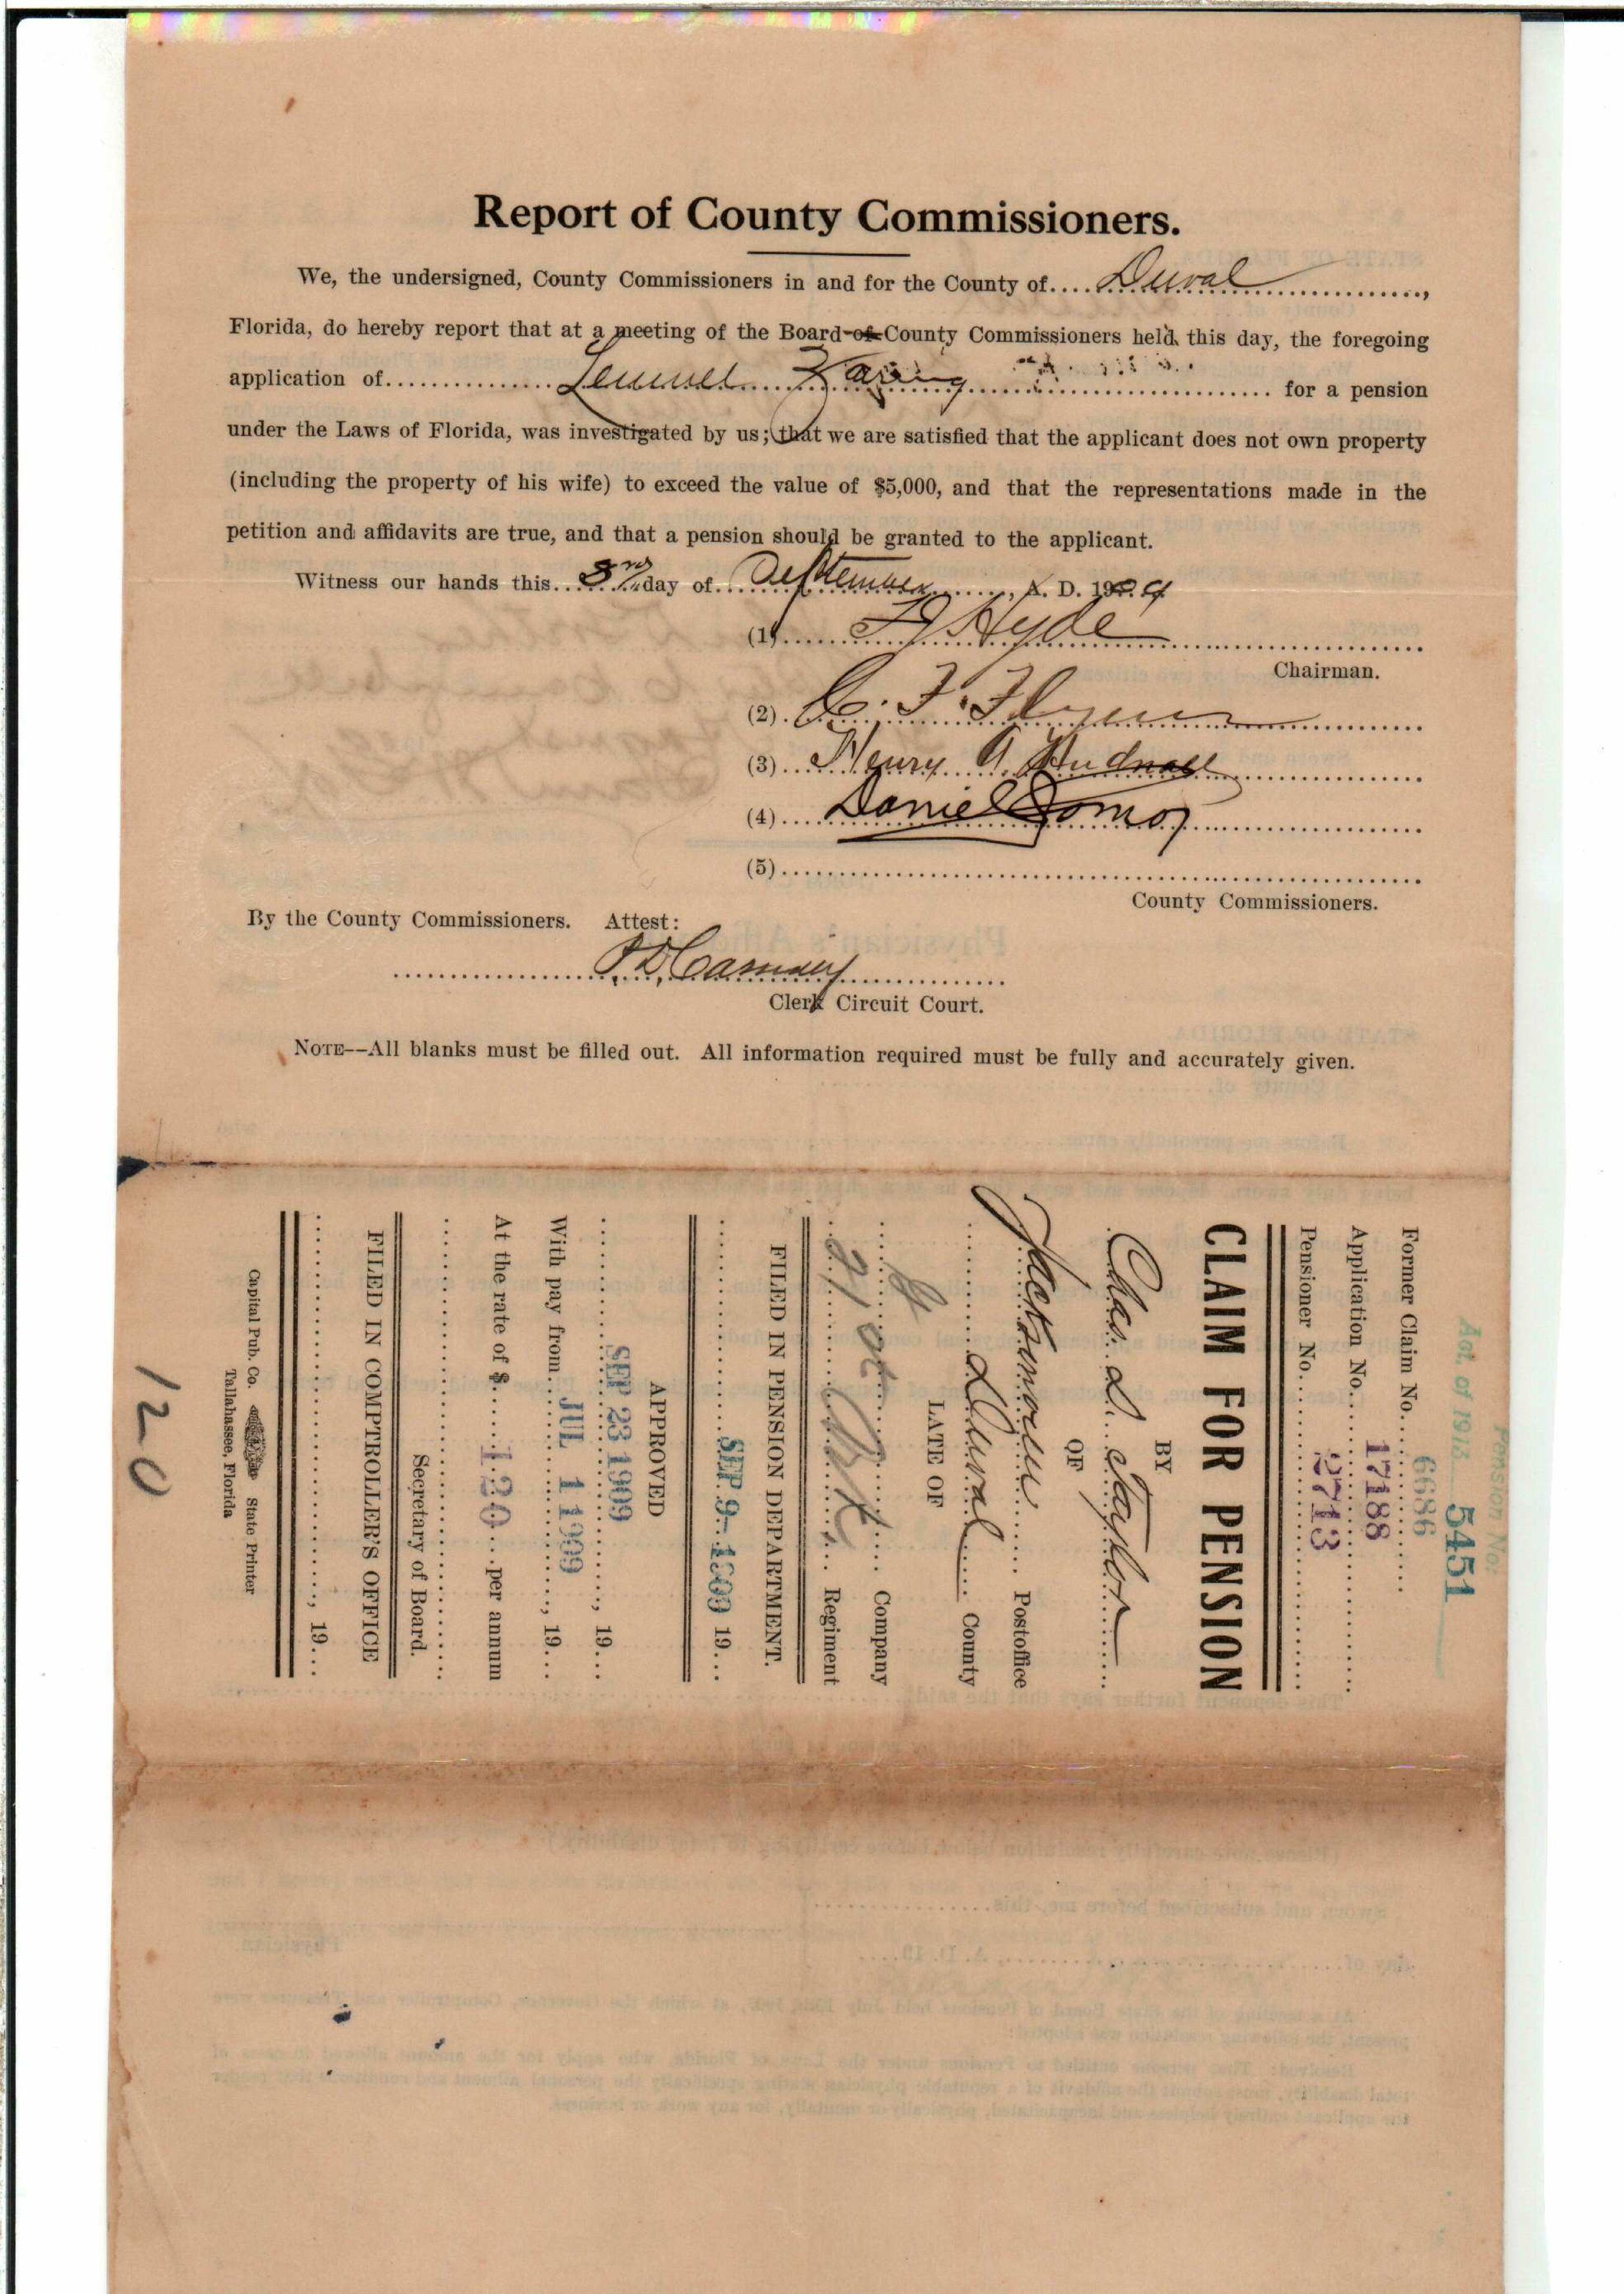 Report of County Commissioners.
We, the undersigned, County Commissioners in and for the County of.... Duval ..............,
Florida, do hereby report that at a meeting of the Board of County Commissioners held this day, the foregoing
application of............... Lemuel ..................... for a pension
under the Laws of Florida, was investigated by us; that we are satisfied that the applicant does not own property
(including the property of his wife) to exceed the value of $5,000, and that the representations made in the
petition and affidavits are true, and that a pension should be granted to the applicant.
Witness our hands this.... 3rd day of... September ......., A. D. 1909
(1)...... Hyde .....................
Chairman.
(2). C. F. Flynn ...............
(3)... Henry A. Hudnall ...............
(4).... Daniel ...............
(5)............................................................
County Commissioners.
By the County Commissioners. Attest:
................ P. D. Cassidey ................
Clerk Circuit Court.
NOTE--All blanks must be filled out. All information required must be fully and accurately given.
Pension No.
Act. of 1913 5451
Former Claim No... 6686 ......
Application No.... 17188 ............
Pensioner No......... 2713 ...............
CLAIM FOR PENSION
BY
Chas. d. Taylor
OF
Jacksonville ...... Postoffice
Duval ...... County
LATE OF
.... Company
21 ... Regiment
FILED IN PENSION DEPARTMENT.
SEP 9- 1909 19...
APPROVED
SEP 23 1909 ........, 19...
With pay from... JUL 1 1909 ...., 19...
At the rate of $...... 120 ...per annum
Secretary of Board.
FILED IN COMPTROLLER'S OFFICE
........................................, 19...
Capital Pub. Co. State Printer
Tallahassee, Florida
120